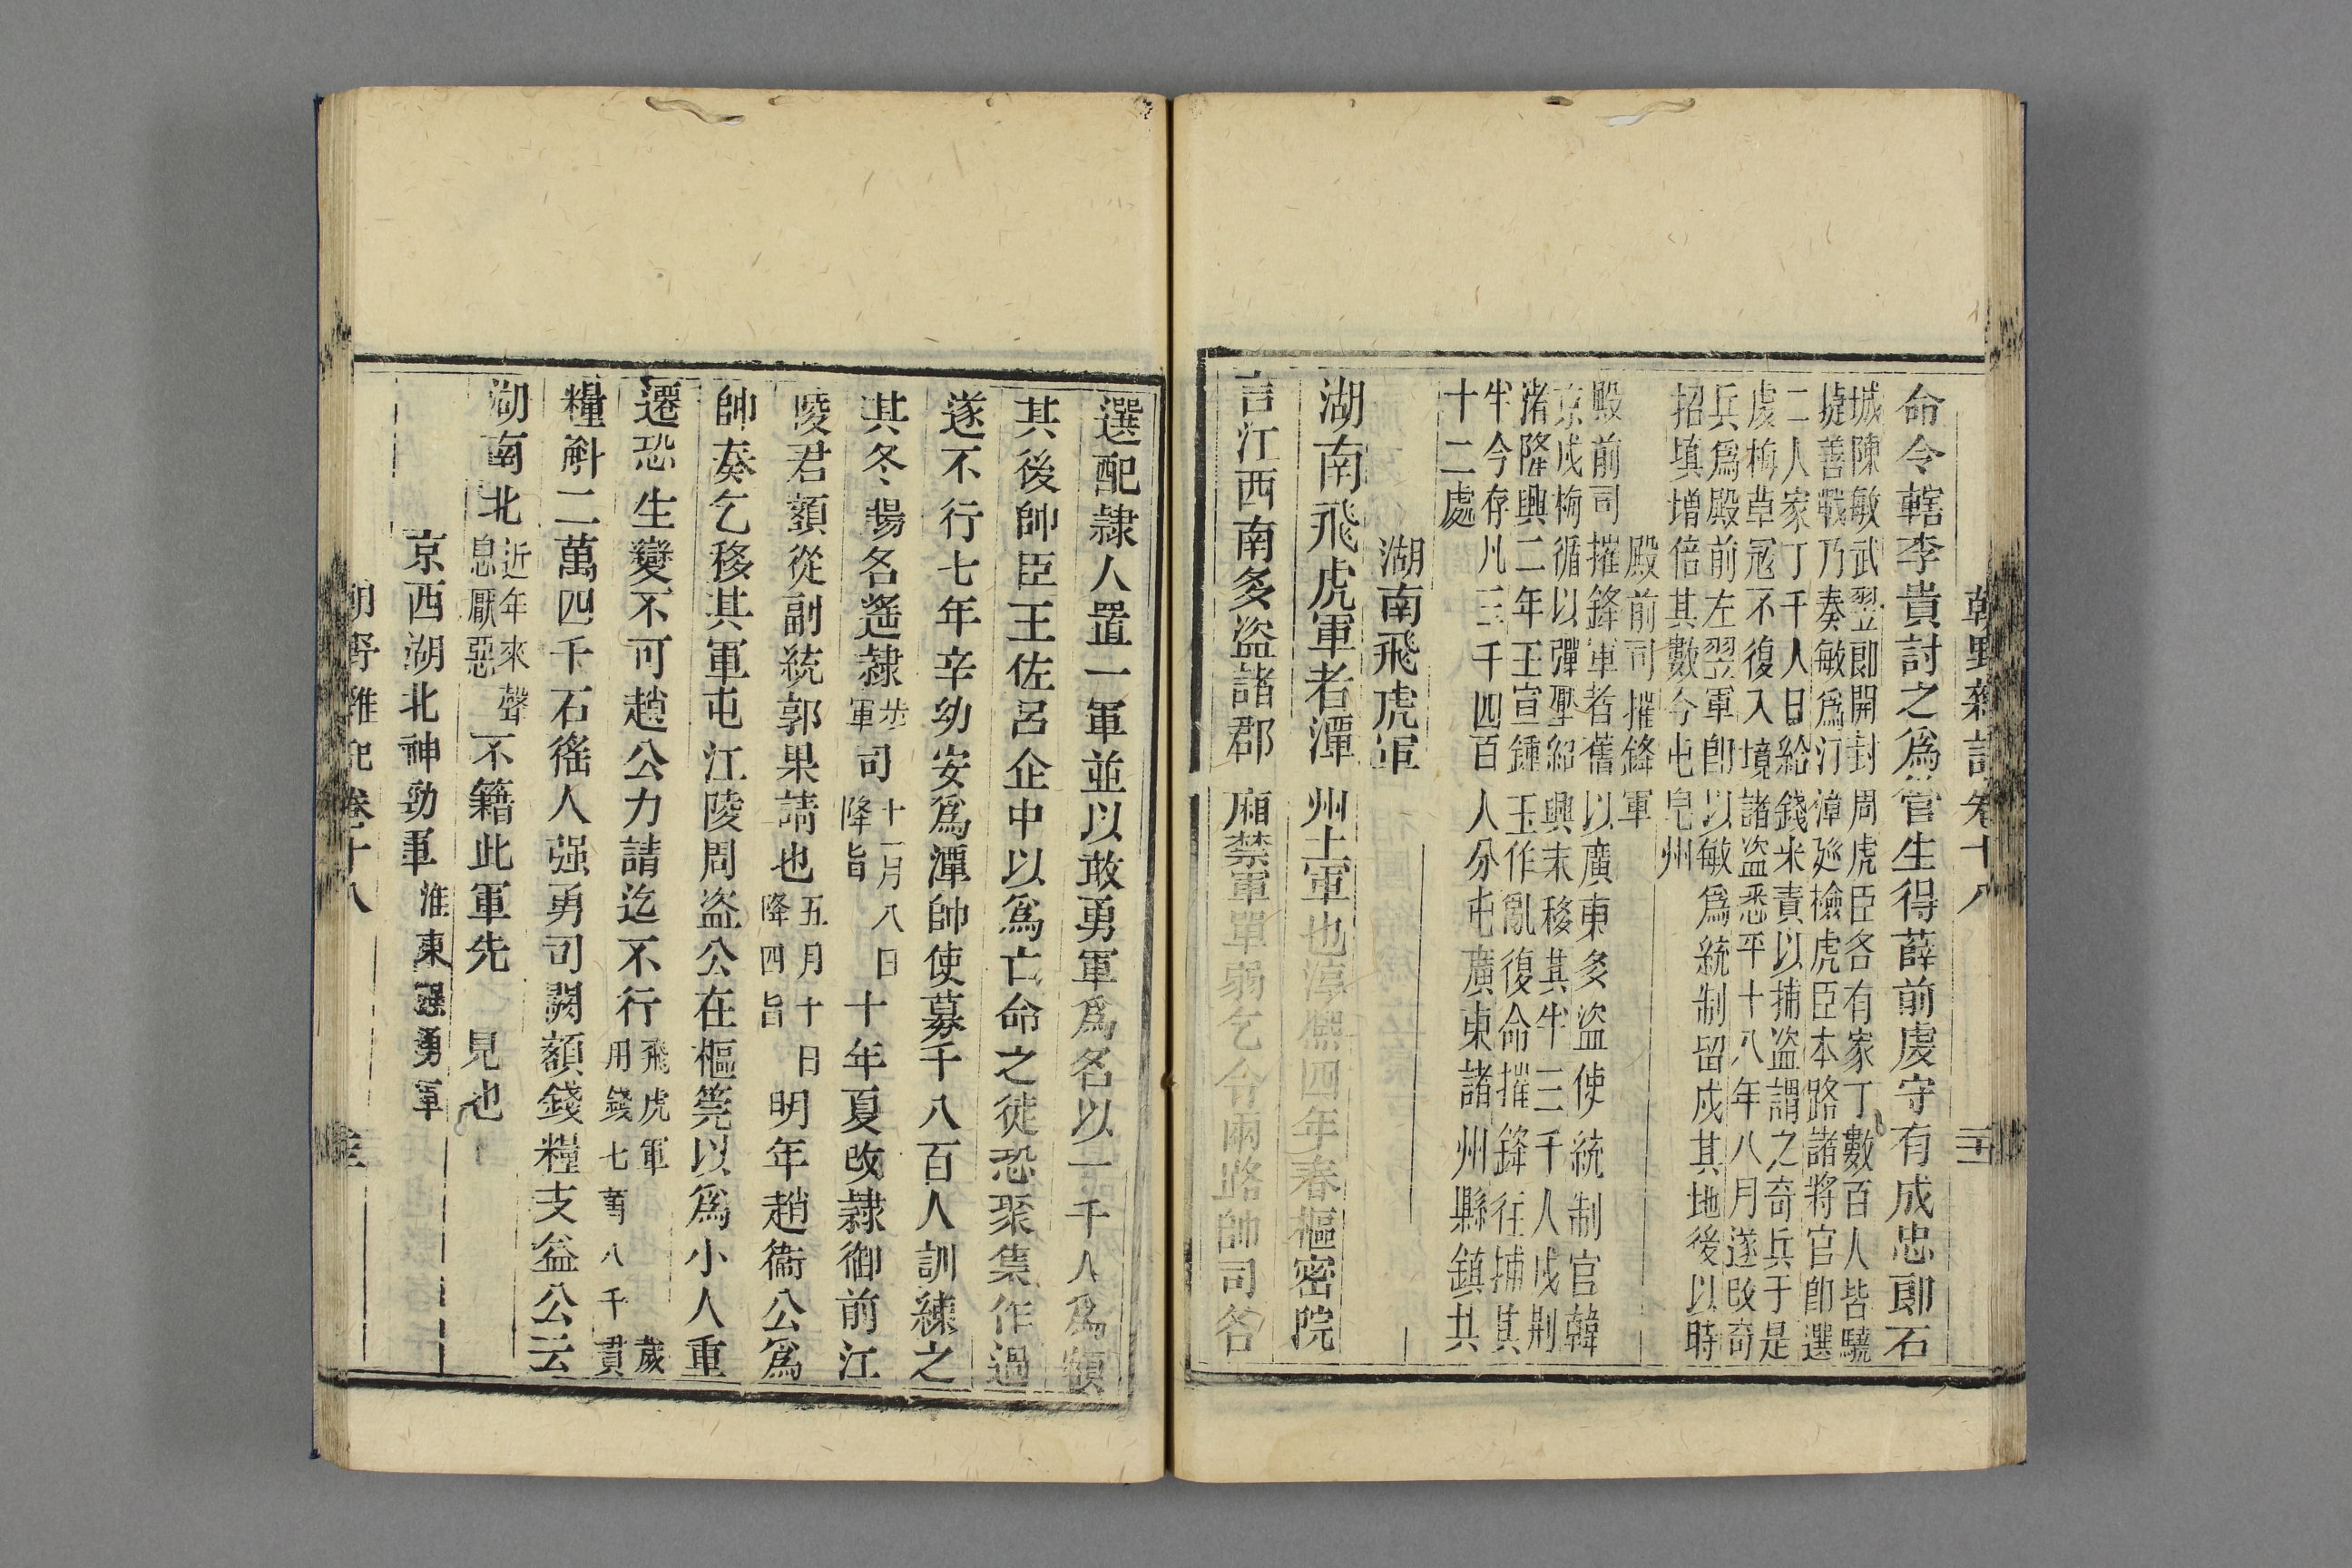 朝野雜記卷十八
命令轄李貴討之爲管生得薛前虔守有成忠郎石
城陳敏武翌郎開封周虎臣各有家丁數百人皆驍
㨗善戰乃奏敏爲汀漳廵檢虎臣本路諸將官卽選
二人家丁千人日給錢米責以捕盜謂之奇兵于是
虔梅草冦不復入境諸盜悉平十八年八月遂改奇
兵爲殿前左翌軍卽以敏爲統制留戍其地後以時
招塡增倍其數今屯皂州
殿前司摧鋒軍
殿前司摧鋒軍者舊以廣東多盜使統制官韓
京戍梅循以彈壓紹興末移其半三千人戍荆
渚隆興二年王宣鍾玉作亂復命摧鋒往捕其
半今存凡三千四百人分屯廣東諸州縣鎮共
十二處
湖南飛虎軍
湖南飛虎軍者潭州土軍也淳熙四年春樞密院
言江西南多盜諸郡廂禁軍單弱乞令兩路帥司各
選配隷人置一軍並以敢勇軍爲名以一千人爲額
其後帥臣王佐呂企中以爲亡命之徒恐聚集作過
遂不行七年辛幼安爲潭帥使募千八百人訓練之
其冬揚名遙隷步軍司十一月八日降旨十年夏改隷御前江
陵君額從副統郭果請也五月十日降四旨明年趙衞公爲
帥奏乞移其軍屯江陵周益公在樞筦以爲小人重
遷恐生變不可趙公力請迄不行飛虎軍歲用錢七萬八千貫
糧斛二萬四千石徭人强勇司闕額錢糧支益公云
湖南北近年來聲息厭惡不籍此軍先見也
京西湖北神勁軍淮東强勇軍
朝野雜記卷十八